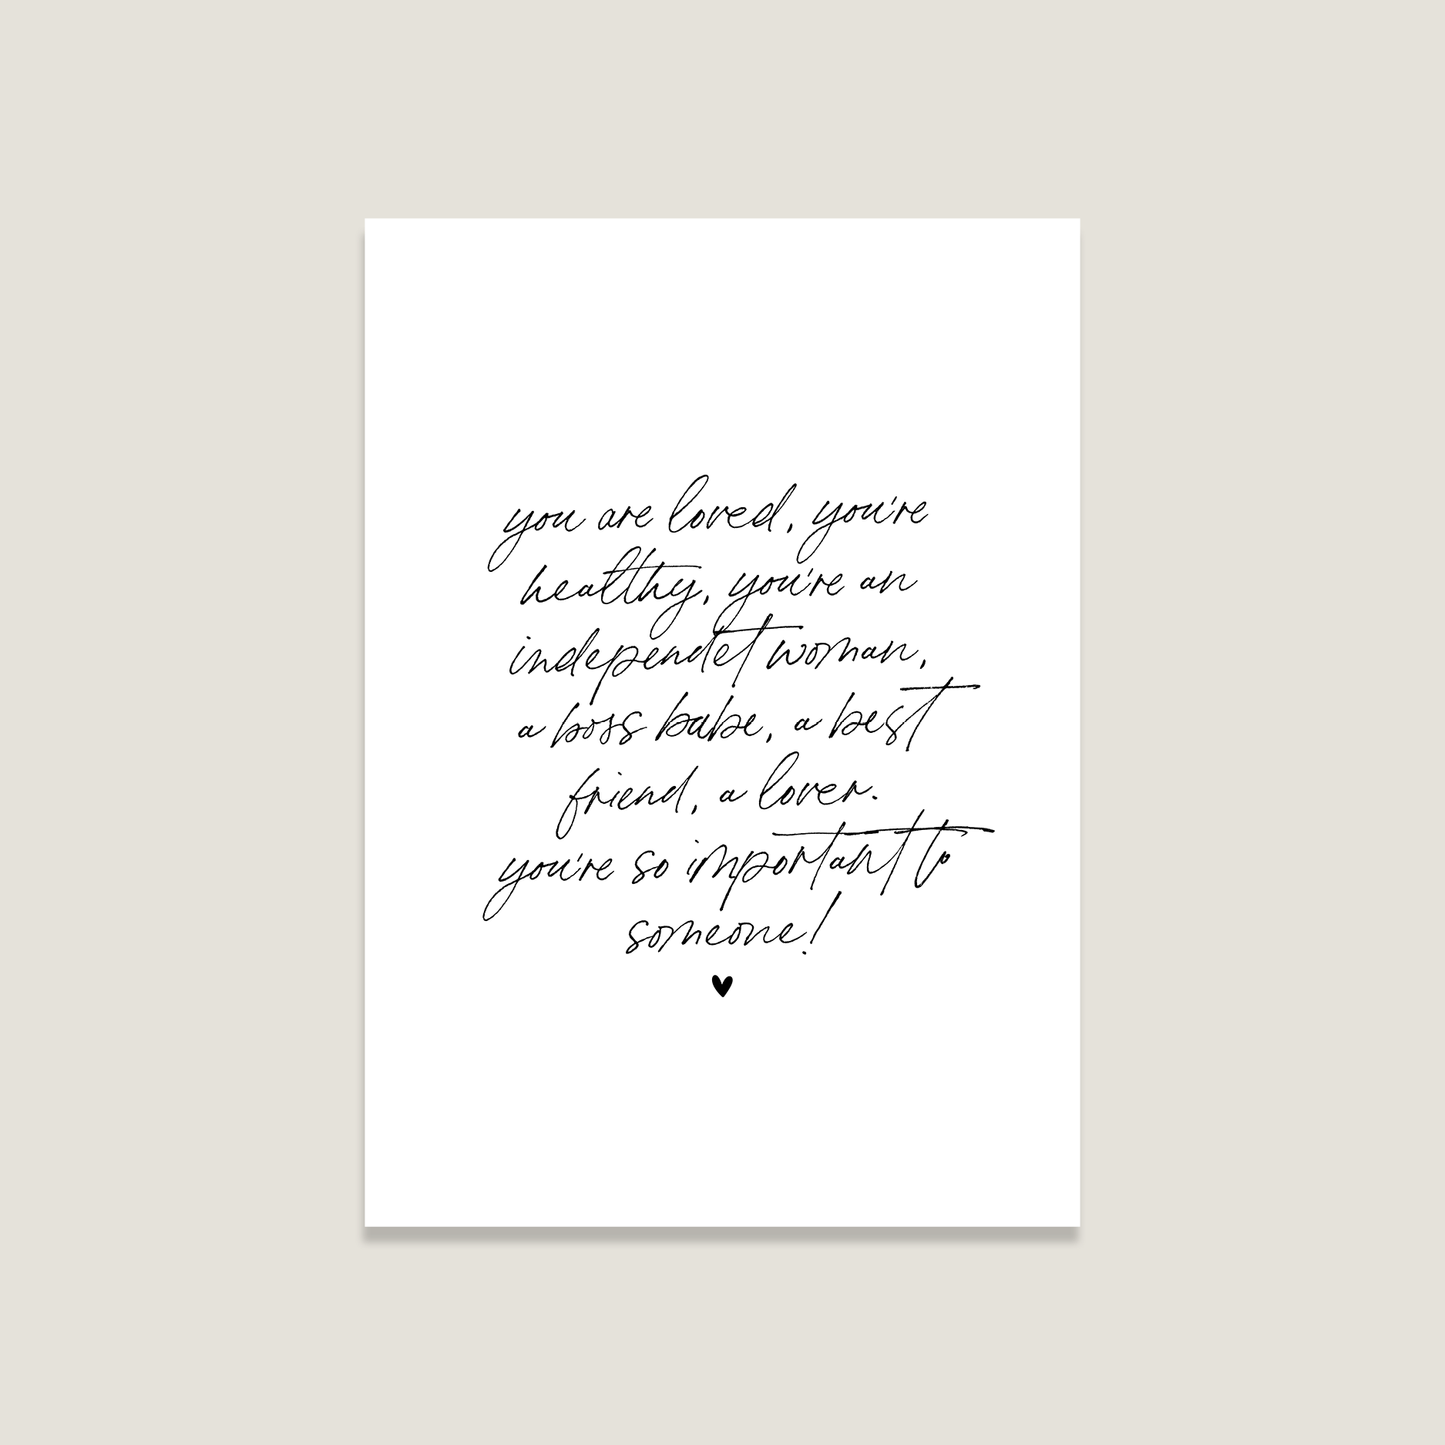 you are loved, you're
healthy, you're an
independet woman,
a boss babe, a best
friend, a lover.
you're so important to
someone!